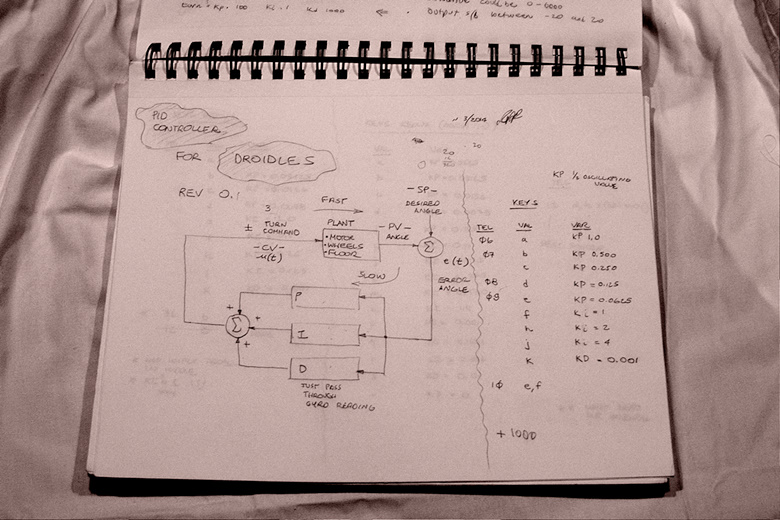 Kp: 100 Ki: 1 Kd 1000
Output s/b between -20 and 20
PID
CONTROLLER
FOR DROIDLES
REV 0.1
3
FAST
± TURN
COMMAND
-CV-
u(t)
PLANT
• MOTOR
• WHEELS
• FLOOR
-PV-
ANGLE
20
20
-SP-
DESIRED
ANGLE
Σ
e(t)
ERROR
ANGLE
SLOW
P
I
D
+
+
+
Σ
JUST PASS
THROUGH
GYRO READING
KP ½ OSCILLATING
VALUE
KEYS
TEL VAL VAR
φ6 a KP 1.0
φ7 b KP 0.500
c KP 0.250
φ8 d KP = 0.125
φ9 e KP = 0.0625
f Ki = 1
h Ki = 2
j Ki = 4
K KD = 0.001
1φ e,f
+ 1000